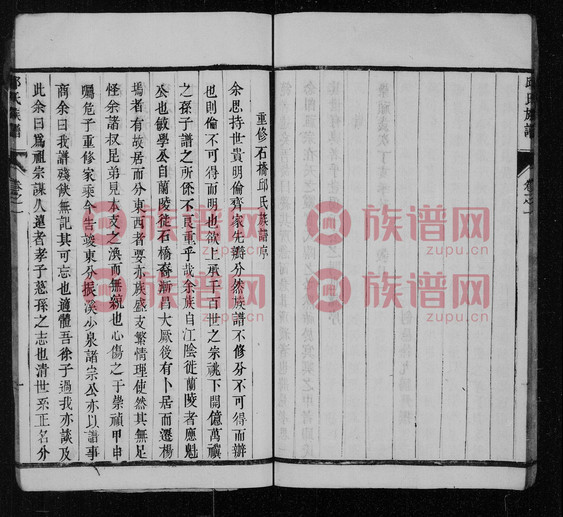 重修石橋邱氏族譜序
余思持世貴明倫齊家先辨分然族譜不修分不可得而辨
也則倫不可得而明也欲上承千百世之宗祧下開億萬禩
之孫子譜之所係不艮重乎哉余族自江陰徙蘭陵者應魁
公也敏學公自蘭陵徙石橋裔漸昌大厥後有卜居而遷楊
塲者有故居而分東西者要亦族盛支繁情理使然其無足
怪余諸叔昆弟見本支之渙而無統也心傷之于崇禎甲申
囑危子重修家乘今告竣東分振溪少泉諸宗公亦以譜事
商余曰我譜殘缺無記其可忘也適體吾徐子過我亦談及
此余曰爲祖宗謀久遠者孝子慈孫之志也清世系正名分
邱氏族譜
卷之一
邱氏族譜
卷之一
族譜网
www.zupu.cn
族譜网
www.zupu.cn
族譜网
www.zupu.cn
族譜网
www.zupu.cn